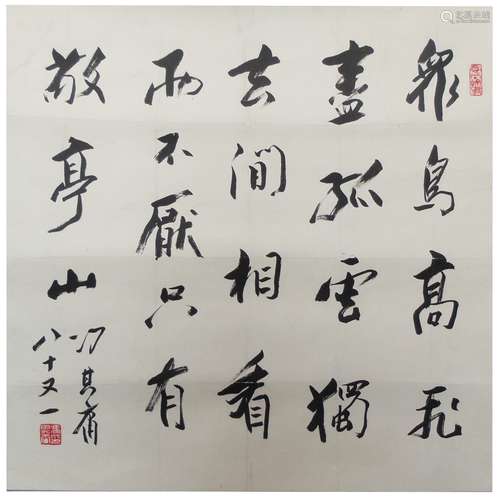 衆鳥高飛
盡孤雲獨
去閒相看
兩不厭只有
敬亭山
馮其庸
八十又一